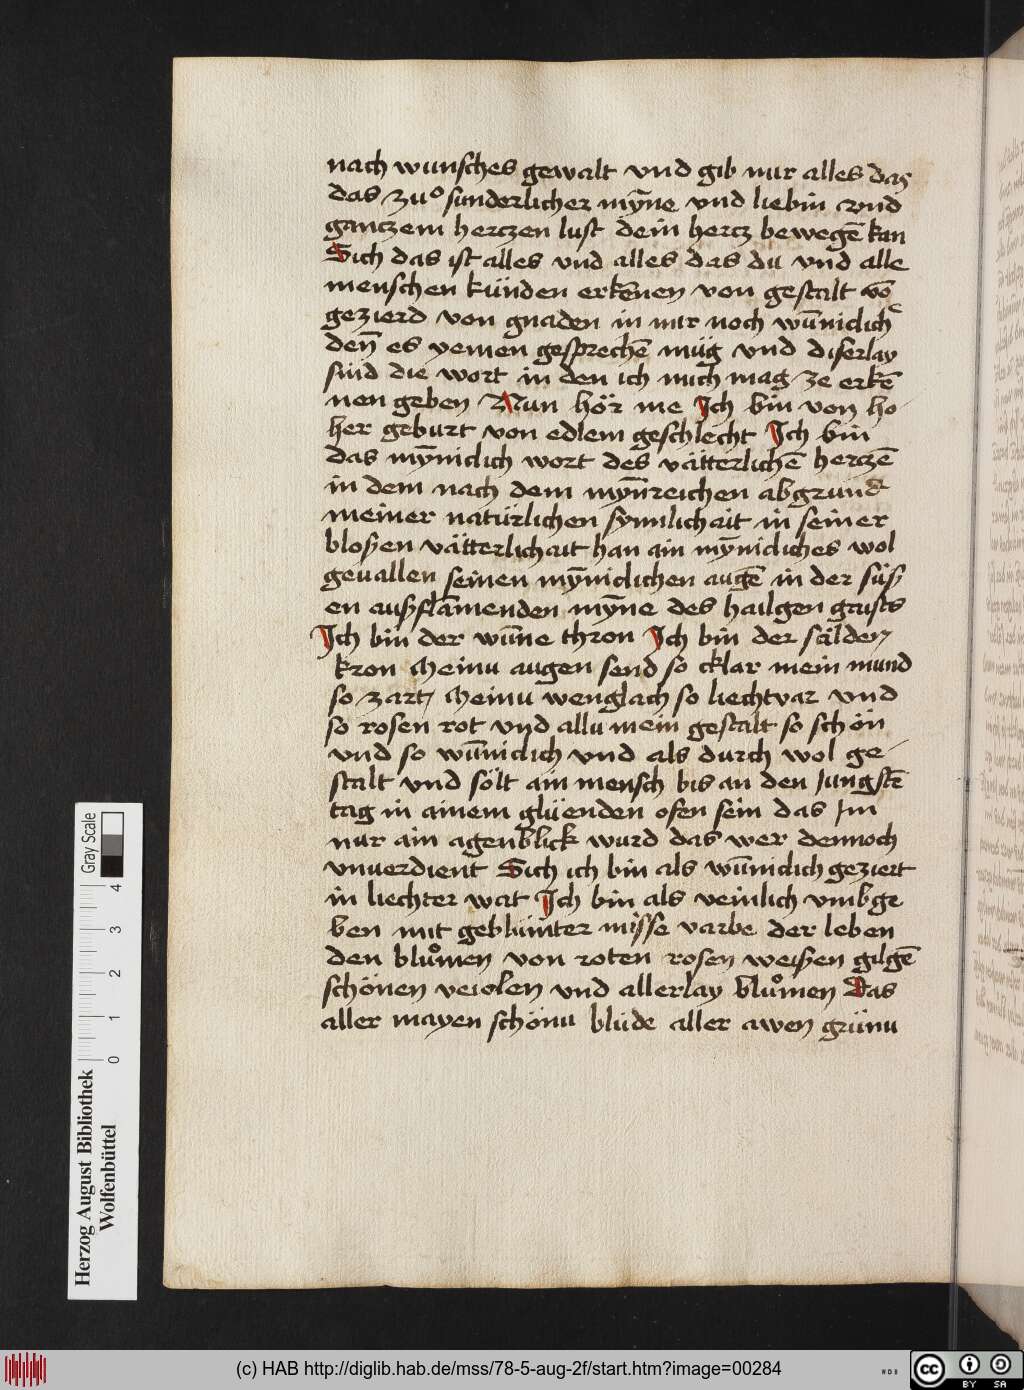 nach wunsches gewalt vnd gib mir alles das
das zuͦ sunderlicher mȳne vnd liebin vnd
ganczem herczen lust dein hercz bewegē kan
Sich das ist alles vnd alles das du vnd alle
menschen künden erkēnen von gestalt vō
gezierd von gnaden in mir noch wūniclich
den̄ es yemen gesprechē müg vnd diserlay
sind die wort in den ich mich mag ze erkē
nen geben Nun hör me Ich bin von ho
her geburt von edlem geschlecht Ich bin
das mȳniclich wort des vätterlichē herczē
in dem nach dem mȳnreichen abgrund
meiner natürlichen synnlichait in seiner
bloßen vätterlichait han ain mȳnicliches wol
geuallen seinen mȳniclichen augē in der süß
en außflāmenden mȳne des hailgen gaists
Ich bin der wūne thron Ich bin der sälden
kron Meinu augen send so cklar mein mund
so zart Meinu wenglach so liechtvar vnd
so rosen rot vnd allu mein gestalt so schön
vnd so wūniclich vnd als durch wol ge-
stalt vnd sölt ain mensch bis an den Jungstē
tag in ainem glüenden ofen sein das Im
nur ain agenblick wurd das wer dennoch
vnuerdient Sich ich bin als wūniclich geziert
in liechter wat Ich bin als veinlich vmbge
ben mit geblümter misse varbe der leben
den bluͦmen von roten rosen weißen gilgē
schönen veiolen vnd allerlay bluͦmen Das
aller mayen schönu blüde aller awen grünu
Gray Scale
4
3
2
1
0
Herzog August Bibliothek
Wolfenbüttel
(c) HAB http://diglib.hab.de/mss/78-5-aug-2f/start.htm?image=00284
WDB
cc
BY SA